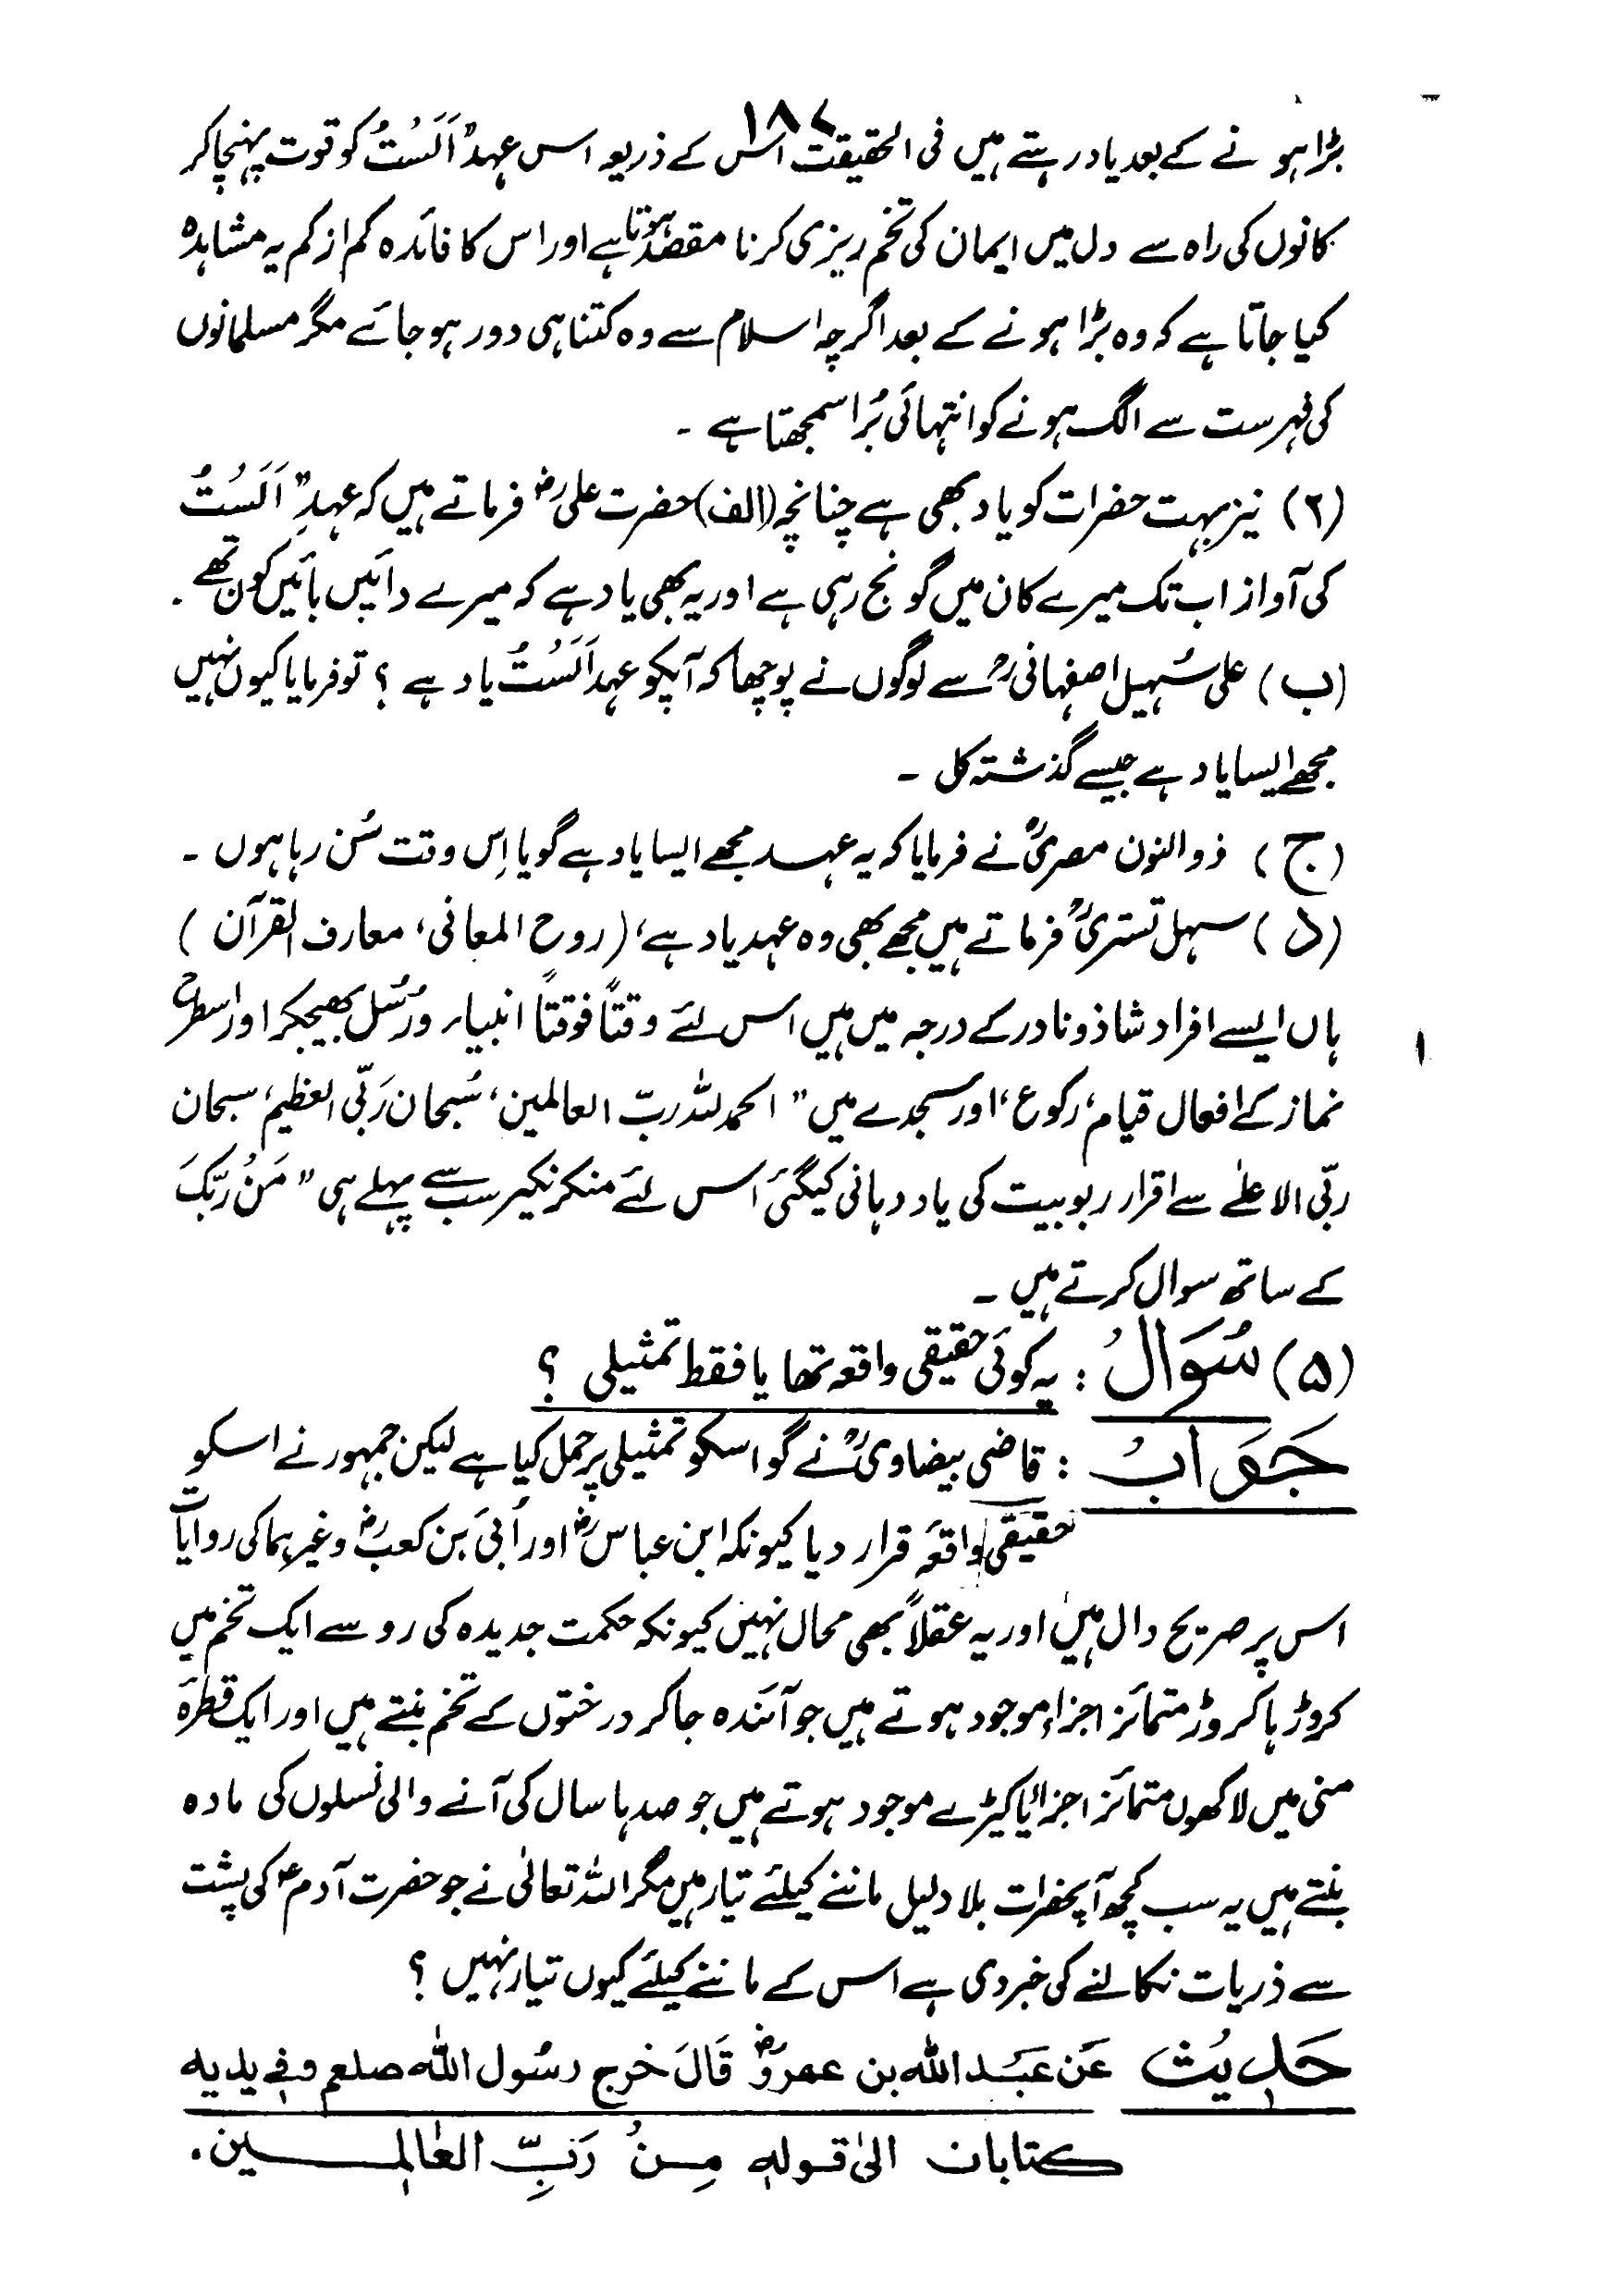 ۱۸۷
بڑا ہو نے کے بعد یاد رہتے ہیں فی الحقیقت اس کے ذریعہ اس عہد" اَلَسْتُ کو قوت پہنچا کر
کانوں کی راہ سے دل میں ایمان کی تخم ریزی کرنا مقصد ہوتا ہے اور اس کا فائدہ کم از کم یہ مشاہدہ
کیا جاتا ہے کہ وہ بڑا ہونے کے بعد اگرچہ اسلام سے وہ کتنا ہی دور ہو جائے مگر مسلمانوں
کی فہرست سے الگ ہونے کو انتہائی بُرا سمجھتا ہے ۔
(۲) نیز بہت حضرات کو یاد بھی ہے چنانچہ (الف) حضرت علیؓ فرماتے ہیں کہ عہدِ" اَلَسْتُ
کی آواز اب تک میرے کان میں گونج رہی ہے اور یہ بھی یاد ہے کہ میرے دائیں بائیں کون تھے ۔
(ب) علی سُہیل اصفہانیؒ سے لوگوں نے پوچھا کہ آپکو عہد اَلَسْتُ یاد ہے ؟ تو فرمایا کیوں نہیں
مجھے ایسا یاد ہے جیسے گذشتہ کل ۔
(ج) ذوالنون مصریؒ نے فرمایا کہ یہ عہد مجھے ایسا یاد ہے گویا اِس وقت سُن رہا ہوں ۔
(د) سہل تستریؒ فرماتے ہیں مجھے بھی وہ عہد یاد ہے، (روح المعانی، معارف القرآن)
ہاں ایسے افراد شاذ و نادر کے درجہ میں ہیں اس لئے وقتاً فوقتاً انبیاء ورُسُل بھیجکر اور اسطرح
نماز کے افعال قیام، رکوع، اور سجدے میں" الحمد للہ ربّ العالمین، سُبحان رَبّی العظیم، سبحان
ربّی الاعلٰے سے اقرار ربوبیت کی یاد دہانی کیگئی اس لئے منکر نکیر سب سے پہلے ہی" مَنْ رَبُّکَ
کے ساتھ سوال کرتے ہیں ۔
(۵) سُوَالْ : یہ کوئی حقیقی واقعہ تھا یا فقط تمثیلی ؟
جَوَابْ : قاضی بیضاویؒ نے گو اسکو تمثیلی پر حمل کیا ہے لیکن جمہور نے اسکو
حقیقی واقعہ قرار دیا کیونکہ ابن عباسؓ اور اُبیّ بن کعبؓ وغیرہما کی روایات
اس پر صریح دال ہیں اور یہ عقلاً بھی محال نہیں کیونکہ حکمت جدیدہ کی رو سے ایک تخم میں
کروڑ ہا کروڑ متمائز اجزاء موجود ہوتے ہیں جو آئندہ جا کر درختوں کے تخم بنتے ہیں اور ایک قطرۂ
منی میں لاکھوں متمائز اجزاء یا کیڑے موجود ہوتے ہیں جو صدہا سال کی آنے والی نسلوں کی مادہ
بنتے ہیں یہ سب کچھ آپحضرات بلا دلیل ماننے کیلئے تیار ہیں مگر اللہ تعالیٰ نے جو حضرت آدمؑ کی پشت
سے ذریات نکالنے کی خبر دی ہے اس کے ماننے کیلئے کیوں تیار نہیں ؟
حَدِیْث عَن عَبَد اللّٰہ بن عمروؓ قَالَ خرج رسُول اللّٰہ صلعم و فی یدیہ
کتابان الیٰ قولہٖ مِنْ رَبِّ العٰالمین ۔